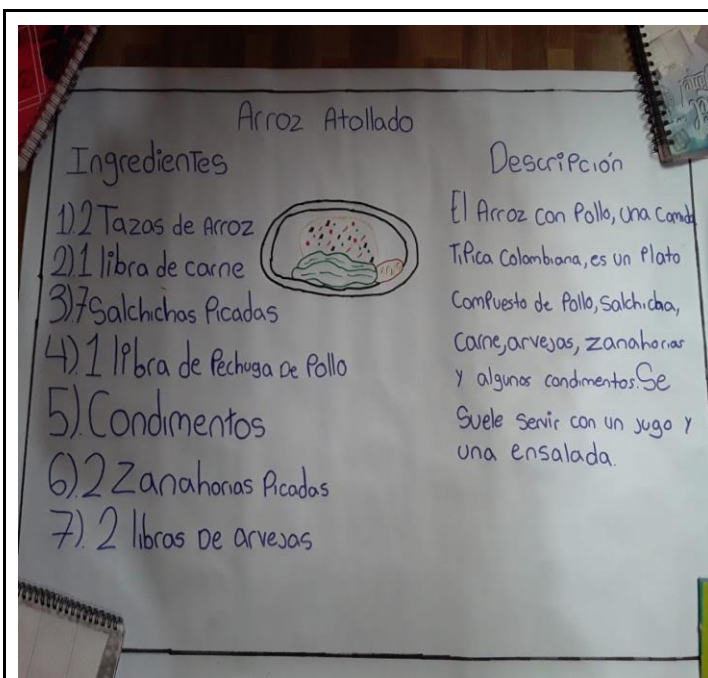 Arroz Atollado
Ingredientes
1) 2 Tazas de Arroz
2) 1 libra de carne
3) 7 Salchichas Picadas
4) 1 libra de Pechuga De Pollo
5) Condimentos
6) 2 Zanahorias Picadas
7) 2 libras De arvejas
Descripción
El Arroz con Pollo, una Comida
Típica Colombiana, es un Plato
Compuesto de Pollo, Salchicha,
Carne, arvejas, zanahorias
y algunos condimentos. Se
Suele servir con un jugo y
una ensalada.